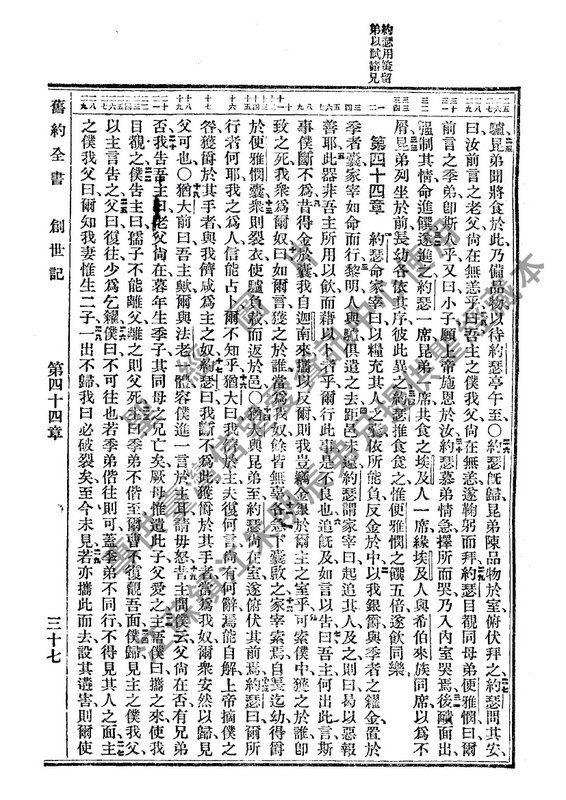 約瑟用策留
弟以試諸兄
驢昆弟聞將食於此乃備品物以待約瑟亭午至〇約瑟旣歸昆弟陳品物於室俯伏拜之約瑟問其安
曰汝前言之老父尙在無恙乎曰爾僕我父尙在無恙遂鞠躬而拜約瑟目覩同母弟便雅憫曰爾
前言之季弟卽斯人乎又曰小子願上帝施恩於汝約瑟慕弟情急擇所而哭乃入內室哭焉後靧面出
强制其情命進饌遂進之約瑟一席昆弟一席共食之埃及人一席緣埃及人與希伯來族同席以爲不
屑昆弟列坐於前長幼各依其序彼此異之約瑟推食食之惟便雅憫之饌五倍遂飮同樂
第四十四章 約瑟命家宰曰以糧充其人之囊依所能負反金於中以我銀爵與季者之糴金置於
季者囊家宰如命而行黎明人與驢俱遣之去距邑未遠約瑟謂家宰曰起追其人及之則曰曷以惡報
善耶此器非吾主所用以飮而藉以卜者乎爾行此事是不良也追旣及如言以告曰吾主何出此言斯
事僕斷不爲昔得金於囊我自迦南來攜以反爾則我豈竊金銀於爾主之室乎可索僕中獲之於誰卽
致之死我衆爲爾奴曰如爾言獲之於誰當爲我奴餘皆無辜遂急下囊啟之家宰索焉自長迄幼得爵
於便雅憫囊衆則裂衣使驢負載而返於邑〇猶大與昆弟至約瑟尙在室遂俯伏其前焉約瑟曰爾所
行者何耶我之爲人信能占卜爾不知乎猶大曰我於主夫復何言尙有何辭焉能自解上帝摘僕之
咎獲爵於其手者與我儕咸爲主之奴約瑟曰我斷不爲此獲爵於其手者當爲我奴爾衆安然以歸見
父可也〇猶大前曰吾主歟爾與法老一體容僕進一言於主耳請毋怒昔主問僕云父尙在否有兄弟
否我告吾主曰老父尙在暮年生季子其同母之兄亡矣厥母惟遺此子父愛之主語僕曰攜之來使我
目覩之僕告主曰孺子不能離父離之則父死主曰季弟不偕至爾曹不復覩吾面僕歸見主之僕我父
以主言告之父曰復往少爲乞糴僕曰不可往也若季弟偕往則可蓋季弟不同行不得見其人之面主
之僕我父曰爾知我妻惟生二子一出不歸我曰必破裂矣至今未見若亦攜此而去設其遘害則爾使
舊約全書 創世記 第四十四章 三十七